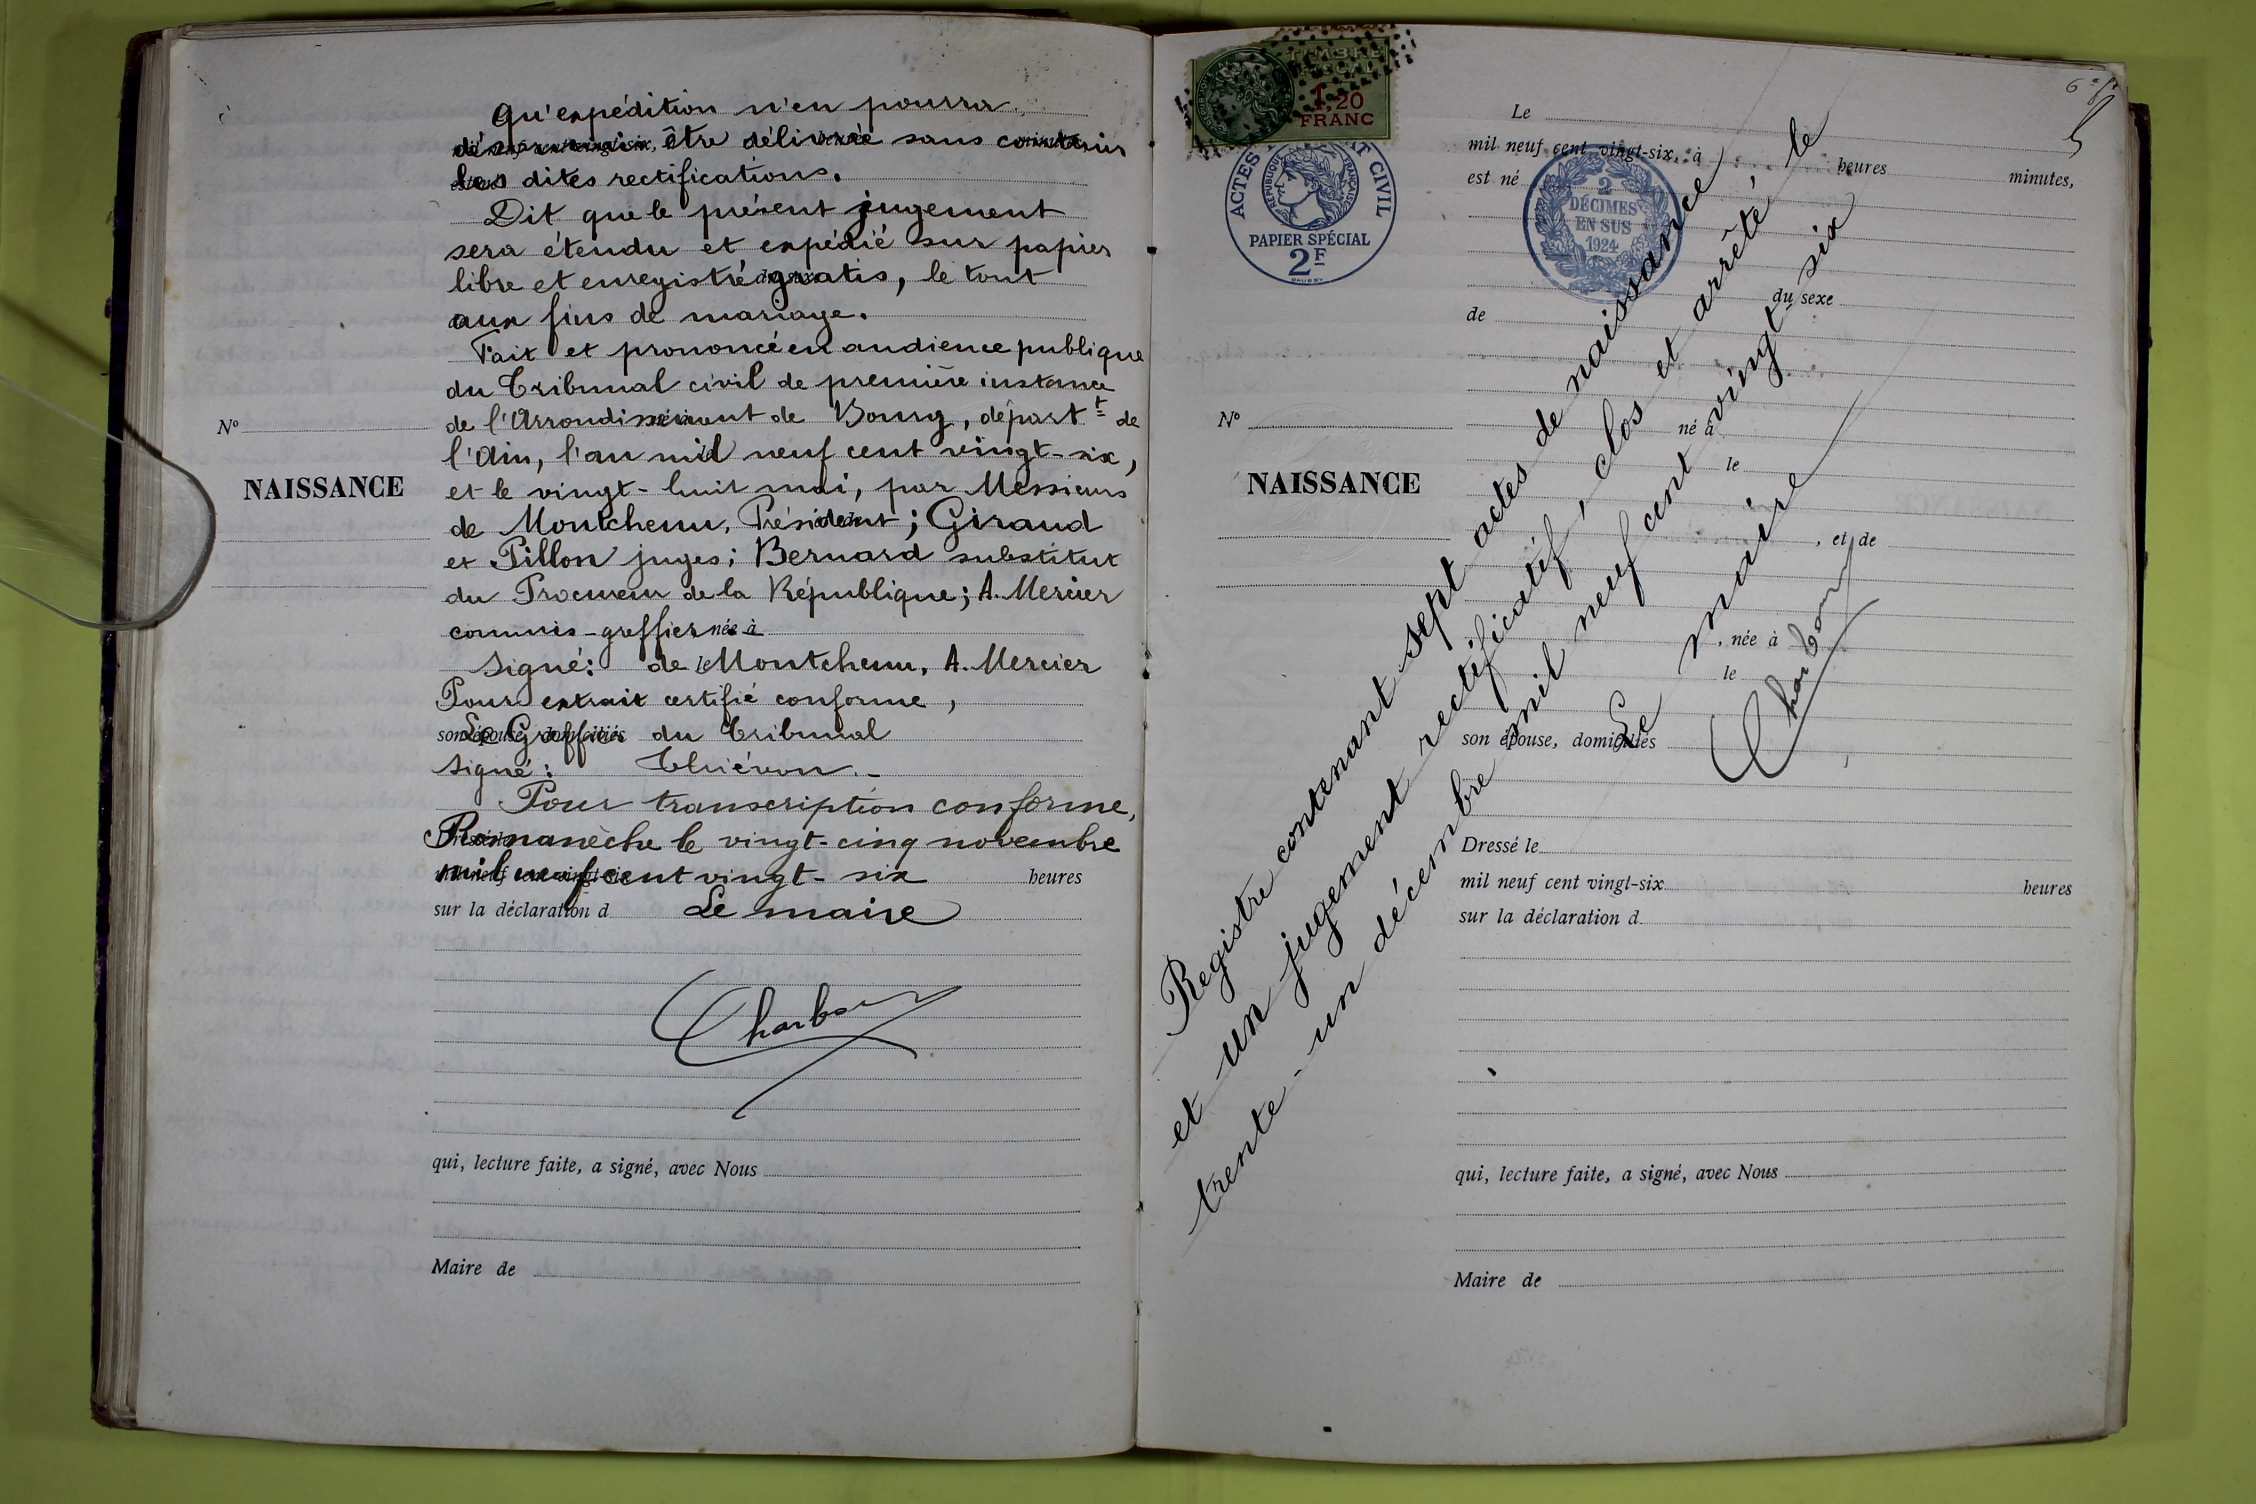 Qu'expédition n'en pourra
désormais être délivrée sans contenir
les dites rectifications.
Dit que le présent jugement
sera étendu et expédié sur papier
libre et enregistré gratis, le tout
aux fins de mariage.
Fait et prononcé en audience publique
du Tribunal civil de première instance
de l'Arrondissement de Bourg, départt de
l'Ain, l'an mil neuf cent vingt-six,
et le vingt-huit mai, par Messieurs
de Montchenu, Président; Giraud
et Pillon juges; Bernard substitut
du Procureur de la République; A. Mercier
commis-greffier née à
signé: de Montchenu, A. Mercier
Pour extrait certifié conforme,
Le Greffier du Tribunal
signé: Thiévon.-
Pour transcription conforme,
Romanèche le vingt-cinq novembre
mil neuf cent vingt-six heures
sur la déclaration d Le maire
Charbon
qui, lecture faite, a signé, avec Nous
Maire de
No
NAISSANCE
TIMBRE
FISCAL
1,20
FRANC
ACTES ÉTAT CIVIL
RÉPUBLIQUE FRANÇAISE
PAPIER SPÉCIAL
2F
2
DÉCIMES
EN SUS
1924
No
NAISSANCE
Le
mil neuf cent vingt-six, à heures minutes,
est né
du sexe
de
né à
le
, et de
, née à
le
son épouse, domiciliés
Dressé le
mil neuf cent vingt-six heures
sur la déclaration d
qui, lecture faite, a signé, avec Nous
Maire de
Registre contenant sept actes de naissance
et un jugement rectificatif, clos et arrêté, le
trente-un décembre mil neuf cent vingt six
Le maire
Charbon